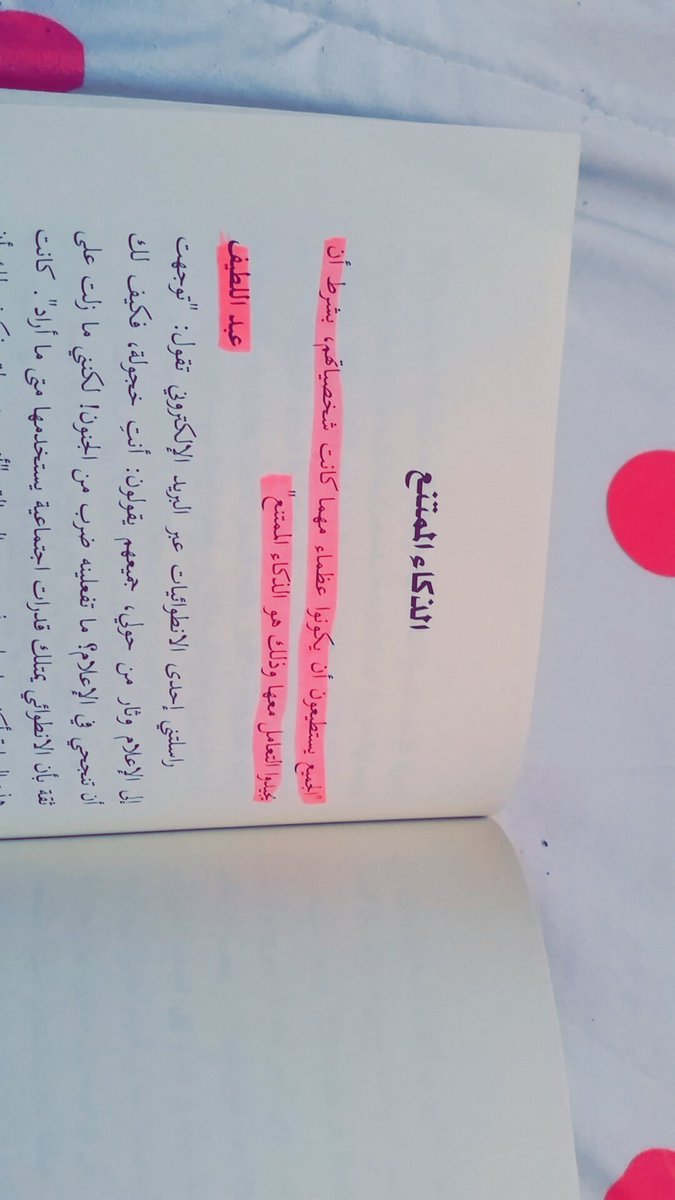 الذكاء الممتنع
"الجميع يستطيعون أن يكونوا عظماء مهما كانت شخصياتهم، بشرط أن
يجيدوا التعامل معها وذلك هو الذكاء الممتنع"
عبد اللطيف
راسلتني إحدى الانطوائيات عبر البريد الإلكتروني تقول: "توجهت
إلى الإعلام وثار من حولي، جميعهم يقولون: أنتِ خجولة، فكيف لك
أن تنجحي في الإعلام؟ ما تفعلينه ضرب من الجنون! لكنني ما زلت على
ثقة بأن الانطوائي يمتلك قدرات اجتماعية يستخدمها متى ما أراد". كانت